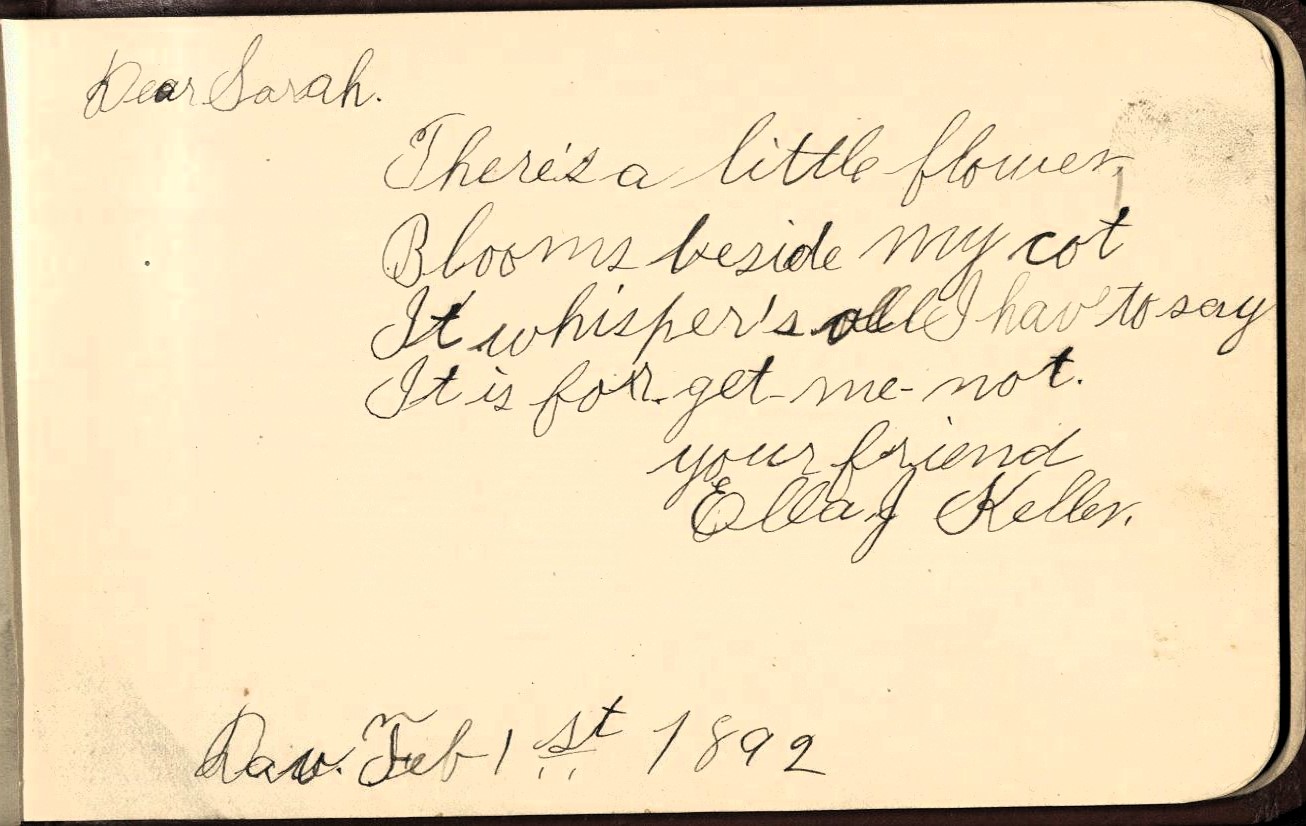 Dear Sarah.
There's a little flower,
Blooms beside my cot
It whisper's all I hav to say
It is for-get-me-not.
your friend
Ella J Keller.
Feb 1st 1892